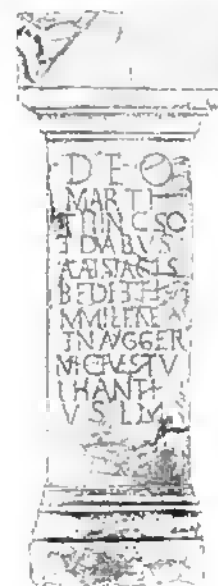 DEO
MARTI
THINCSO
ET DVABVS
ALAISIAGIS
BEDE ET FI
MMILENE
ET N AVG GER
M CIVES TV
IHANTI
VSLM